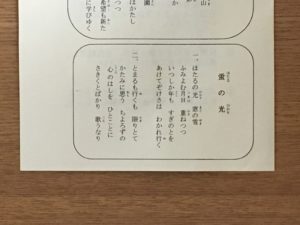 蛍の光
一 ほたるの光 窓の雪
ふみよむ月日 重ねつつ
いつしか年も すぎのとを
あけてぞけさは わかれ行く
二 とまるも行くも 限りとて
かたみに思う ちよろずの
心のはしを ひとことに
さきくとばかり 歌うなり
山
はかたし
つつ
希望も新た
に学びゆく